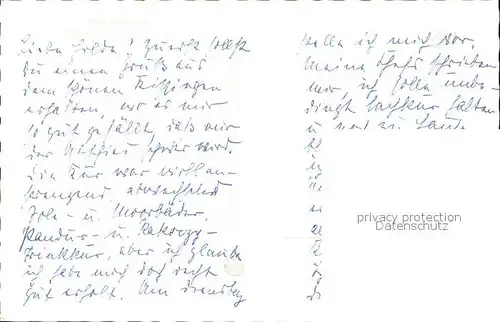 Liebe Hilde! Zuerst sollst
Du einen Gruß aus
dem schönen Kissingen
erhalten, wo es mir
so gut gefällt, daß mir
der Abschied schwer wird.
Die Kur war wohl an-
strengend, abwechselnd
Sole- u. Moorbäder,
Pandur- u. Rakoczy-
Trinkkur, aber ich glaube
ich habe mich doch recht
gut erholt. Am Dienstag
stelle ich mich vor.
Meine Chefs schrieben
mir, ich solle unbe-
dingt Nachkur halten
u
privacy protection
Datenschutz